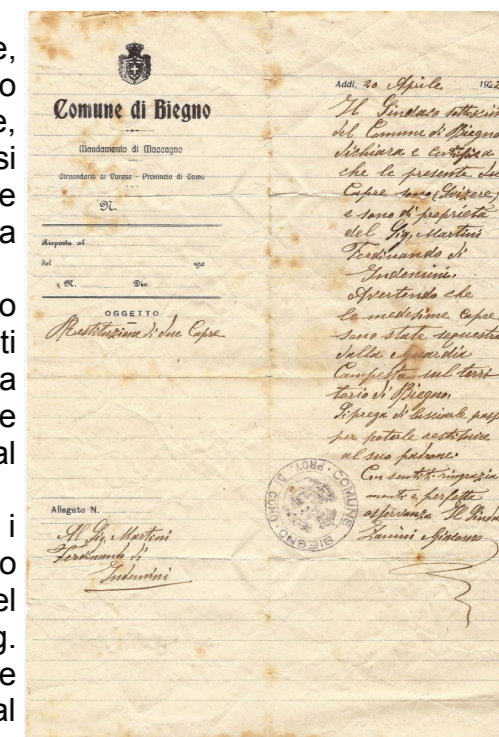 e,
o
e,
si
e
a
o
ti
a
e
al
i
o
el
g.
e
al
Comune di Biegno
Mandamento di Maccagno
Circondario di Varese - Provincia di Como
N.
Risposta al
del 192
N. Div.
OGGETTO
Restituzione di due Capre
Allegato N.
Al Sig. Martini
Ferdinando di
Indemini
Addì, 20 Aprile 192
Il Sindaco sottoscri
del Comune di Biegno
dichiara e certifica
che le presente due
Capre sono (Svizere)
e sono di proprietà
del Sig. Martini
Ferdinando di
Indemini.
Avertendo che
le medesime Capre
sono state sequestra
dalla Guardia
Campestre sul terri
torio di Biegno.
Si prega di lasciarle pass
per poterle restituire
al suo padrone.
Con sentiti ringrazia
menti e perfetta
osservanza Il Sinda
Zanini Giacomo
COMUNE BIEGNO PROV. DI COMO